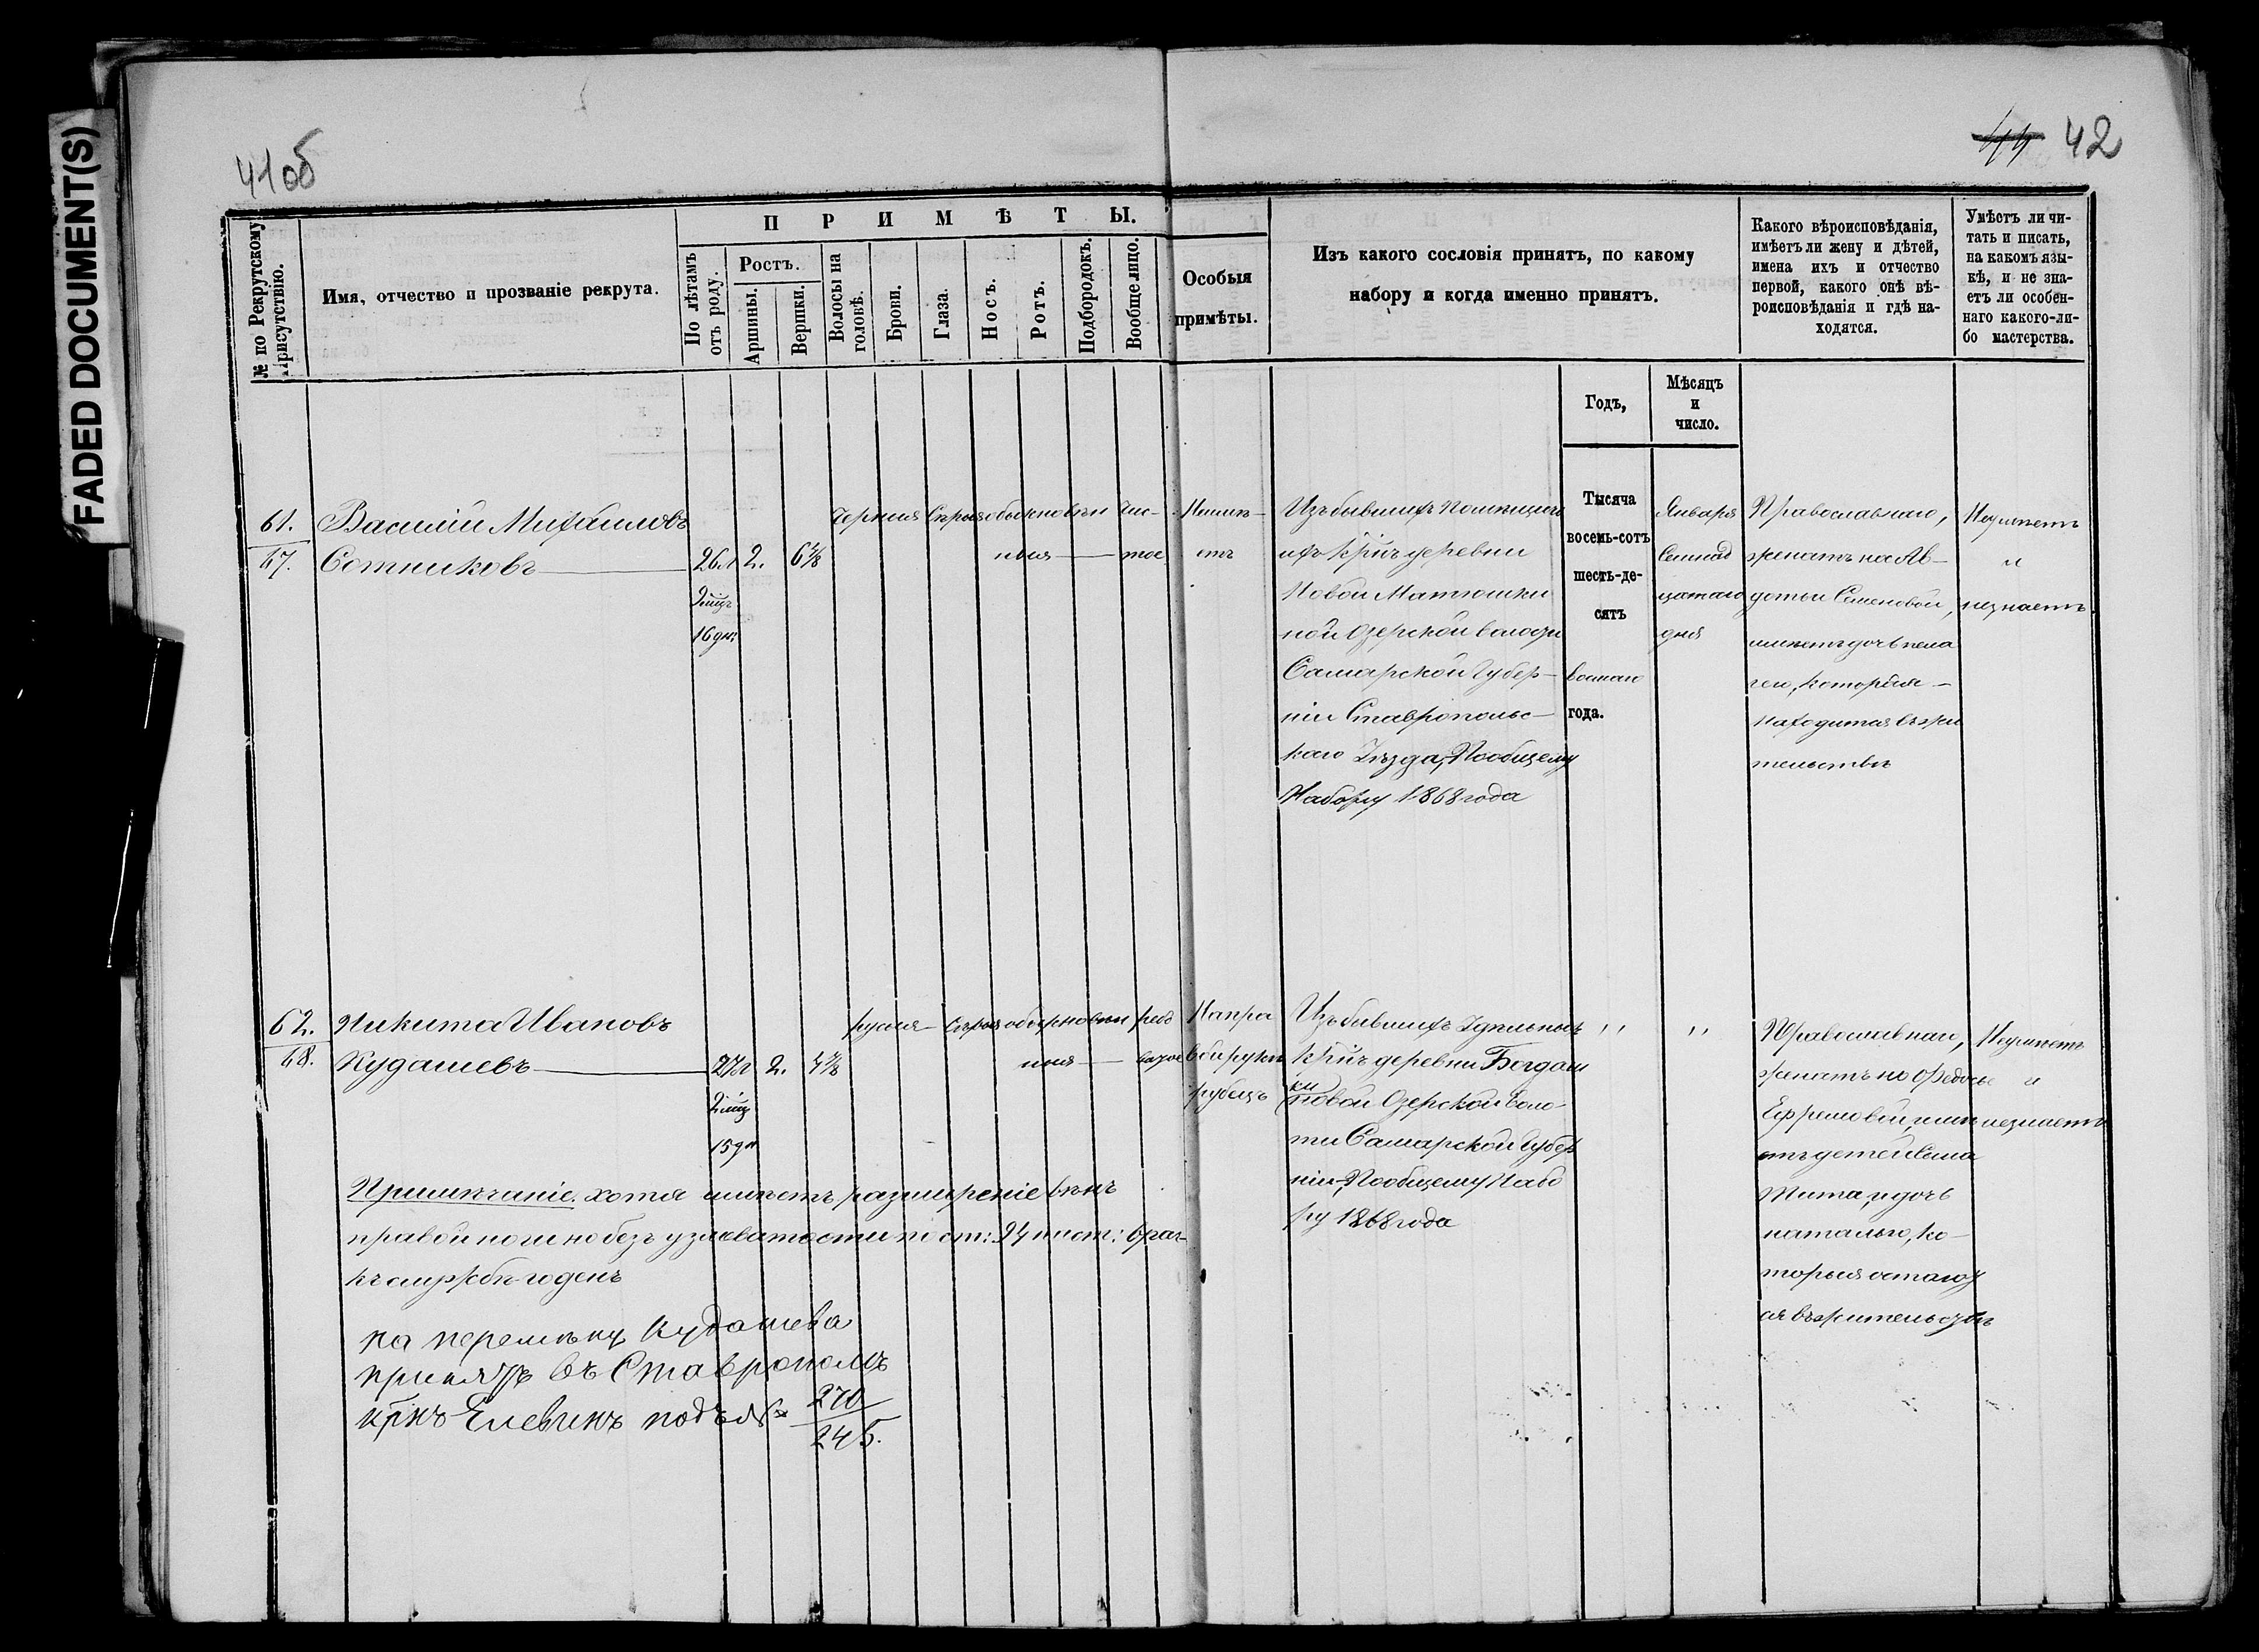 FADED DOCUMENT(S)
41об
44 42
№ по Рекрутскому Присутствію.
Имя, отчество и прозваніе рекрута.
ПРИМѢТЫ.
По лѣтамъ отъ роду.
Ростъ.
Аршины.
Вершки.
Волосы на головѣ.
Брови.
Глаза.
Носъ.
Ротъ.
Подбородокъ.
Вообще лицо.
Особыя
примѣты.
Изъ какого сословія принятъ, по какому
набору и когда именно принятъ.
Какого вѣроисповѣданія,
имѣетъ ли жену и дѣтей,
имена ихъ и отчество
первой, какого онѣ вѣ-
роисповѣданія и гдѣ на-
ходятся.
Умѣетъ ли чи-
тать и писать,
на какомъ язы-
кѣ, и не зна-
етъ ли особен-
наго какого-ли-
бо мастерства.
Годъ,
Мѣсяцъ
и
число.
61.
67.
Василій Михайловъ
Сотниковъ
26л
9 мцъ
16 дн
2.
6 1/8
черныя сѣрыя обыкновен чис-
ныя тое
Неимѣ-
етъ
Изъ бывшихъ Помѣщичь
ихъ крнъ деревни
Новой Матюшки
ной Озерской волости
Самарской Губер-
ніи Ставропольс-
каго Уѣзда, По общему
Набору 1868 года
Тысяча
восемь-сотъ
шесть-де-
сятъ
восмаго
года.
Января
Семнад
цатаго
дня
Православнаго,
женатъ на Ав-
дотьи Семеновой,
имѣетъ дочь пела
гею, которыя
находится въ жи
тельствѣ
Неумѣетъ
и
незнаетъ
62.
68.
Никита Ивановъ
Кудашевъ
27л
2 мц
15 дн
2.
4 7/8
русыя сѣрыя обыкновен ряб
ныя ватое
Напра
вой рукѣ
рубецъ
Изъ бывшихъ Удѣльныхъ
крнъ деревни Богдаш
ки
новой Озерской воло-
сти Самарской Губер
ніи, По общему Набо
ру 1868 года
" "
Православнаго,
женатъ на Федосье
Ефремовой, имѣ
етъ детей сына
Тита, и дочь
наталью, ко-
торыя остают
ся въ жительствѣ
Неумѣетъ
и
незнаетъ
Примѣчаніе. хотя имѣетъ разширеніе венъ
правой ноги но безъ узловатости по ст: 24 наст: врач-
къ службѣ годенъ
на перемѣну Кудашева
принятъ въ Ставрополѣ
крнъ Елевинъ подъ №
270
245.